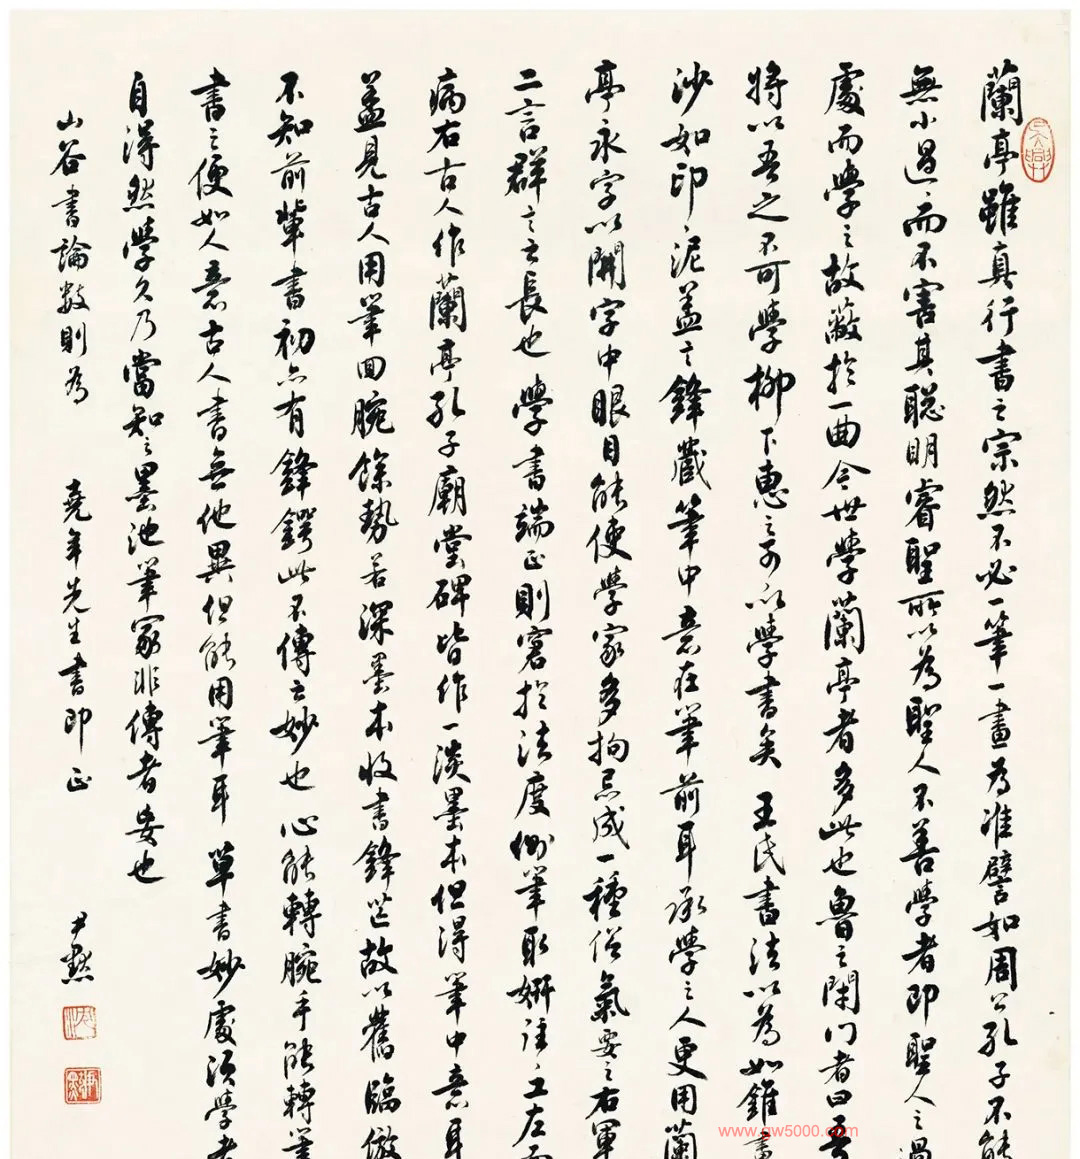 蘭亭雖真行書之宗然不必一筆一畫為准譬如周公孔子不能
無小過過而不害其聰明睿聖所以為聖人不善學者即聖人之過
處而學之故蔽於一曲今世學蘭亭者多此也魯之閉門者曰吾
將以吾之不可學柳下惠之可以學書矣 王氏書法以為如錐畫
沙如印印泥蓋言鋒藏筆中意在筆前耳承學之人更用蘭
亭永字以開字中眼目能使學家多拘忌成一種俗氣要之右軍
二言群言之長也 學書端正則窘於法度側筆取妍往往工左而
病右古人作蘭亭孔子廟堂碑皆作一淡墨本但得筆中意耳
蓋見古人用筆回腕餘勢若深墨本收書鋒芒故以舊臨倣
不知前輩書初亦有鋒鍔此不傳之妙也 心能轉腕手能轉筆
書之便如人意古人書無他異但能用筆耳 草書妙處須學者
自得然學久乃當知之墨池筆冢非傳者妄也
山谷書論數則為 堯年先生書即正 尹默
吳興
沈
尹默
www.gw5000.com